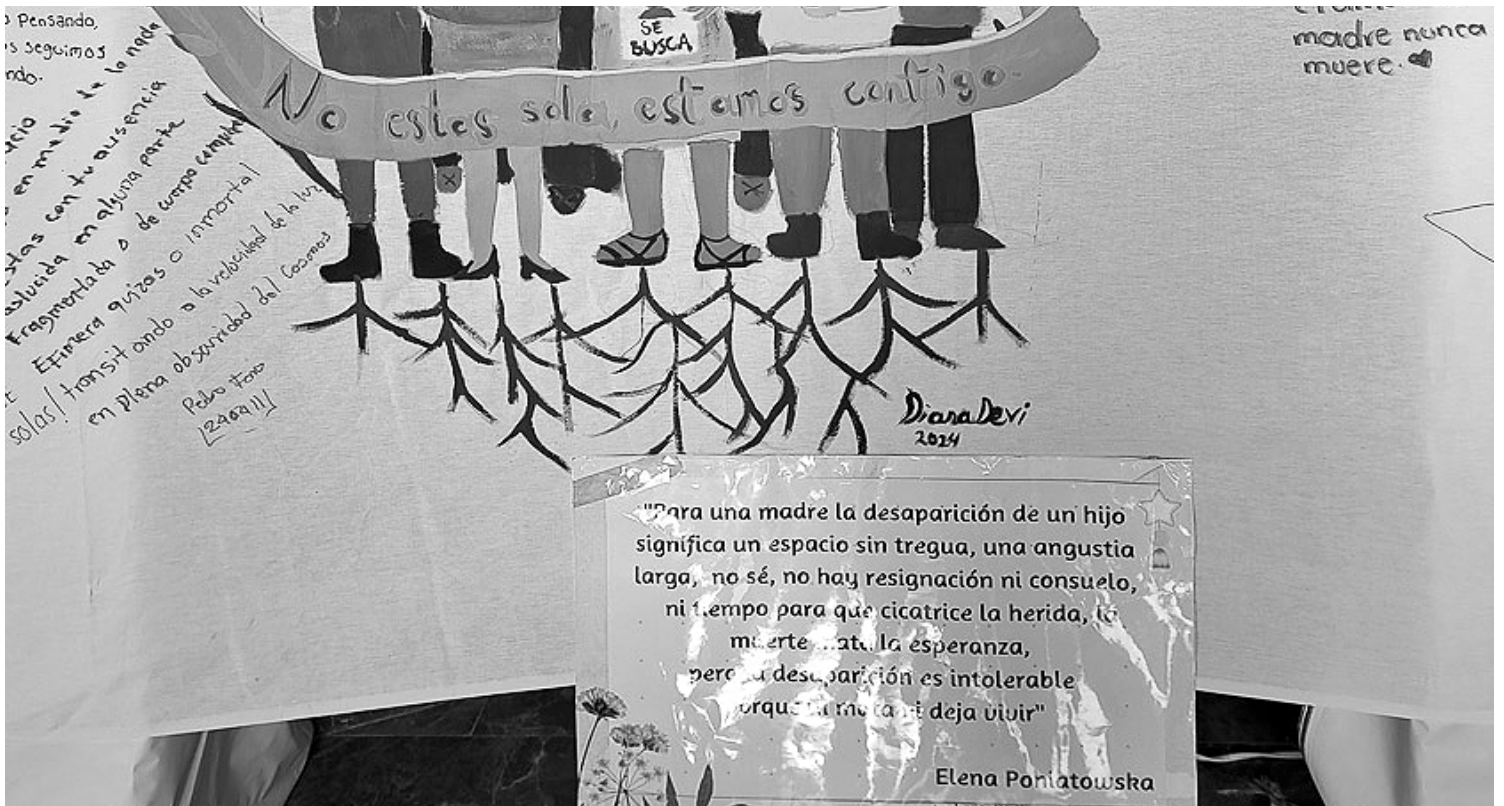 Pensando,
seguimos
ndo.
en medio de la nada
estas con tu ausencia
en alguna parte
Fragmentada o de cuerpo
Efimera quizas o inmortal
solas/ transitando a la velocidad de la luz
en plena obscuridad del Cosmos
Pedro
SE
BUSCA
No estes sola, estamos contigo.
madre nunca
muere.
Diana Devi
2024
"Para una madre la desaparición de un hijo
significa un espacio sin tregua, una angustia
larga, no sé, no hay resignación ni consuelo,
ni tiempo para que cicatrice la herida, la
muerte mata la esperanza,
pero la desaparición es intolerable
porque ni mata ni deja vivir"
Elena Poniatowska